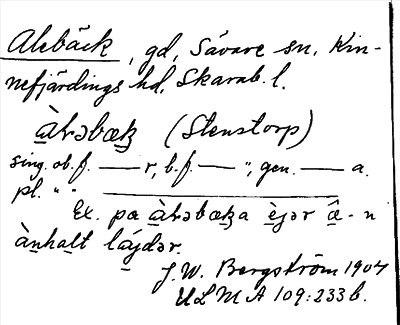 Alebäck, gd, Sävare sn, Kin-
nefjärdings hd, Skarab. l.
àƚəbæk̠ (Stenstorp)
sing. ob. f. — r, b. f. — ", gen. — a.
pl. " " —
Ex. pæ àƚəbæk̠a èjər æ̂ - n
ànhalt lájdər.
J. W. Bergström 1904
ULMA 109:233 b.